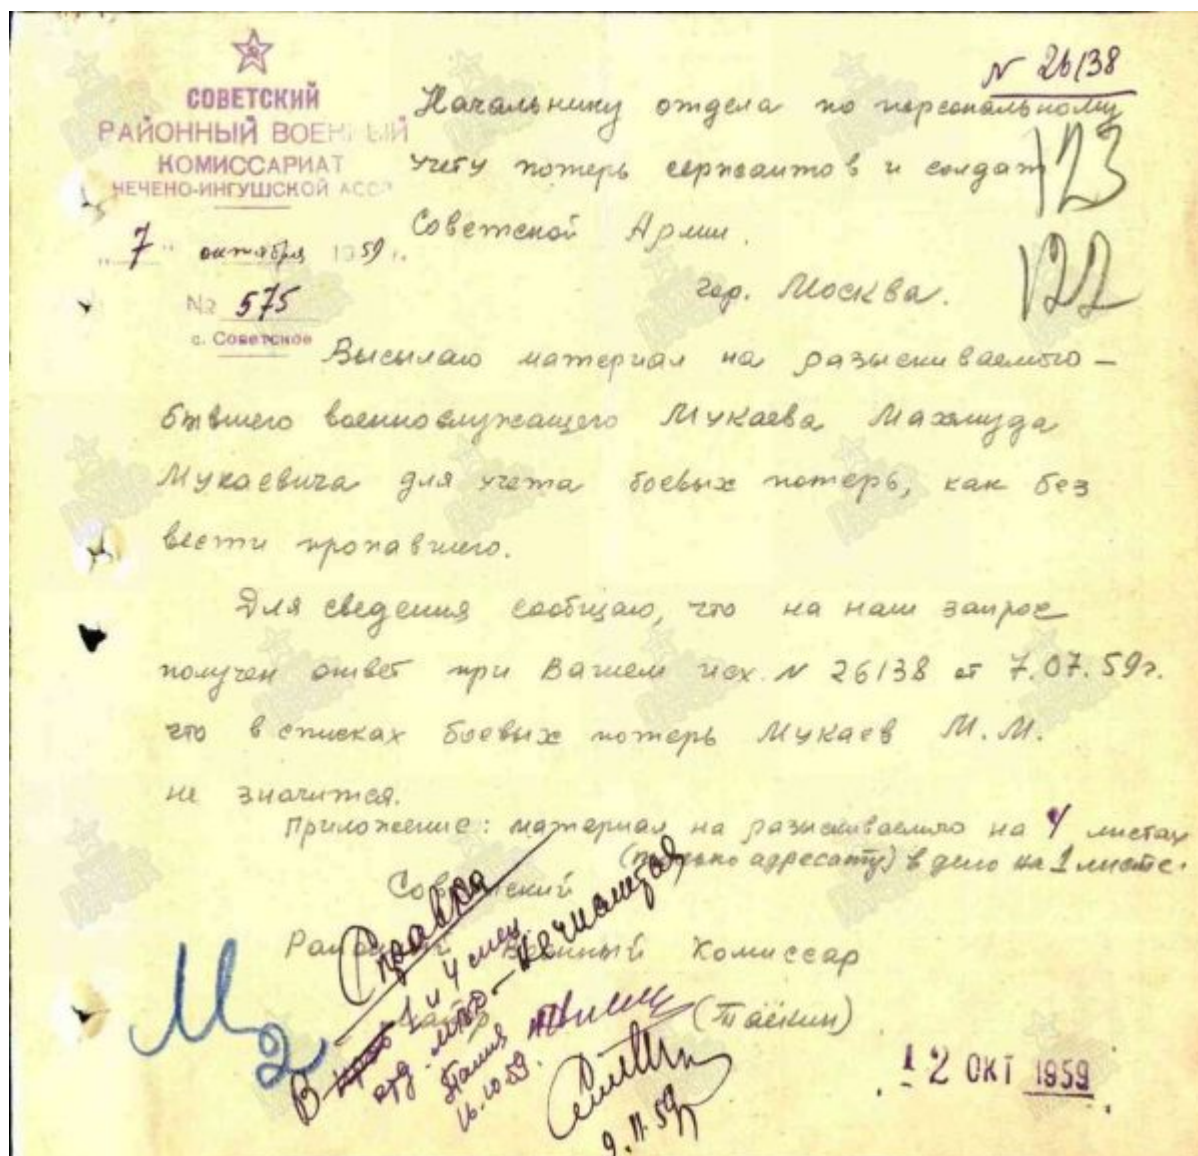 СОВЕТСКИЙ
РАЙОННЫЙ ВОЕННЫЙ
КОМИССАРИАТ
ЧЕЧЕНО-ИНГУШСКОЙ АССР
"7" октября 1959 г.
№ 575
с. Советское
N 26138
Начальнику отдела по персональному
учету потерь сержантов и солдат
Советской Армии.
гор. Москва.
123
122
Высылаю материал на разыскиваемого -
бывшего военнослужащего Мукаева Махмуда
Мукаевича для учета боевых потерь, как без
вести пропавшего.
Для сведения сообщаю, что на наш запрос
получен ответ при Вашем исх. N 26138 от 7.07.59г.
что в списках боевых потерь Мукаев М.М.
не значится.
Приложение: материал на разыскиваемого на 4 листах
(только адресату) в дело на 1 листе.
Советский
Районный Военный Комиссар
(Таёкин)
Справка
В 1 и 4
отд.
не числится
16.10.59.
9.11.59
М2
12 ОКТ 1959